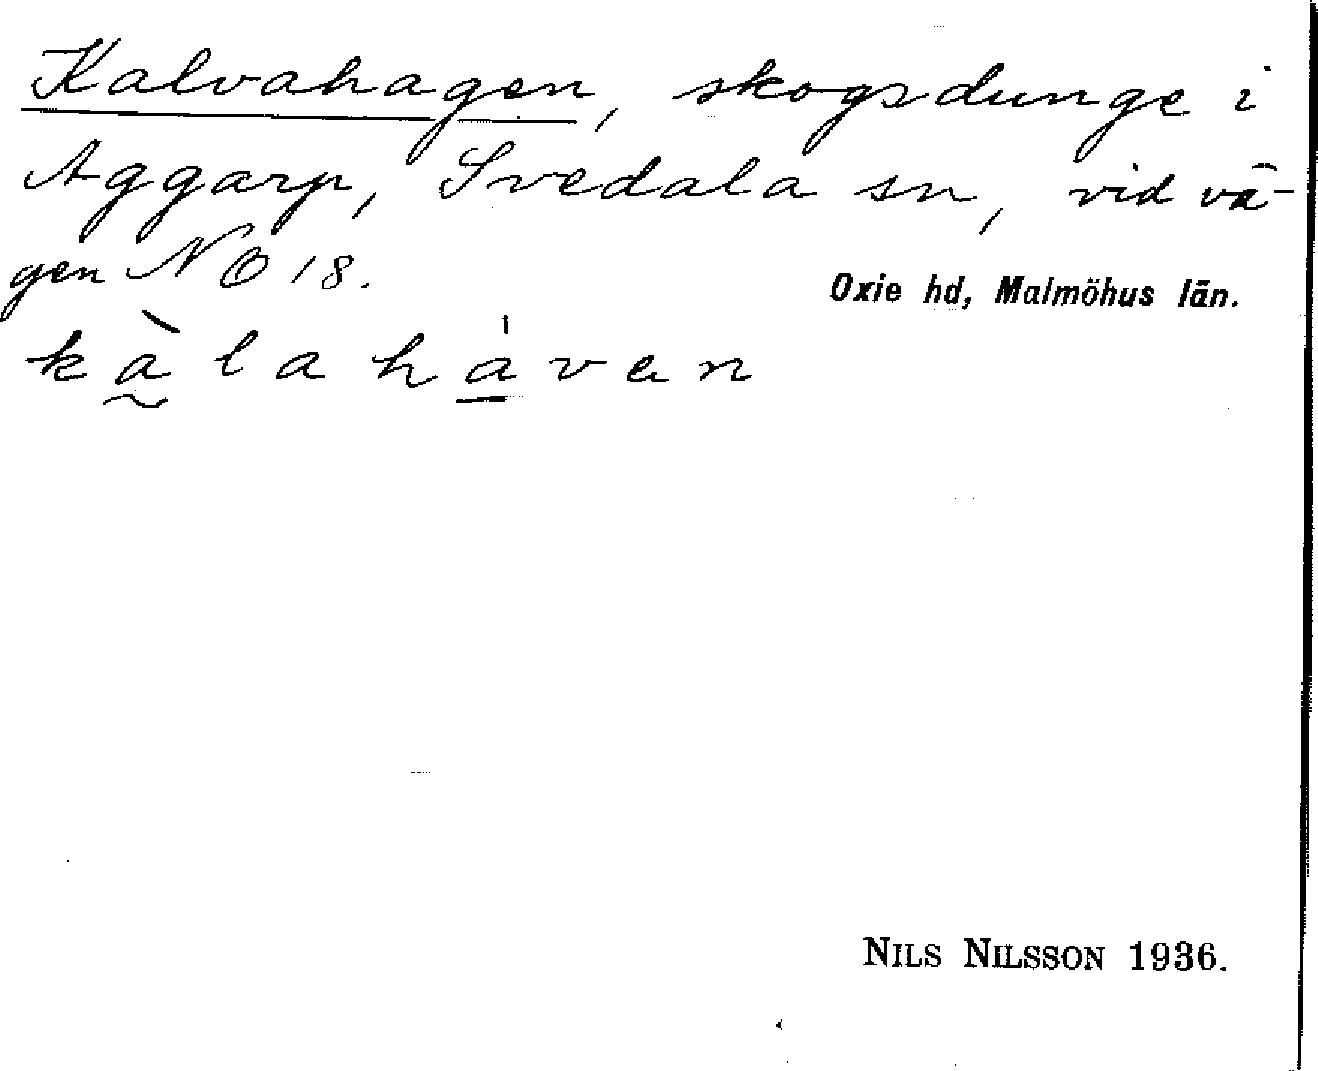 Kalvahagen, skogsdunge i
Aggarp, Svedala sn, vid vä-
gen NO 18.
Oxie hd, Malmöhus län.
kàlahávan
NILS NILSSON 1936.